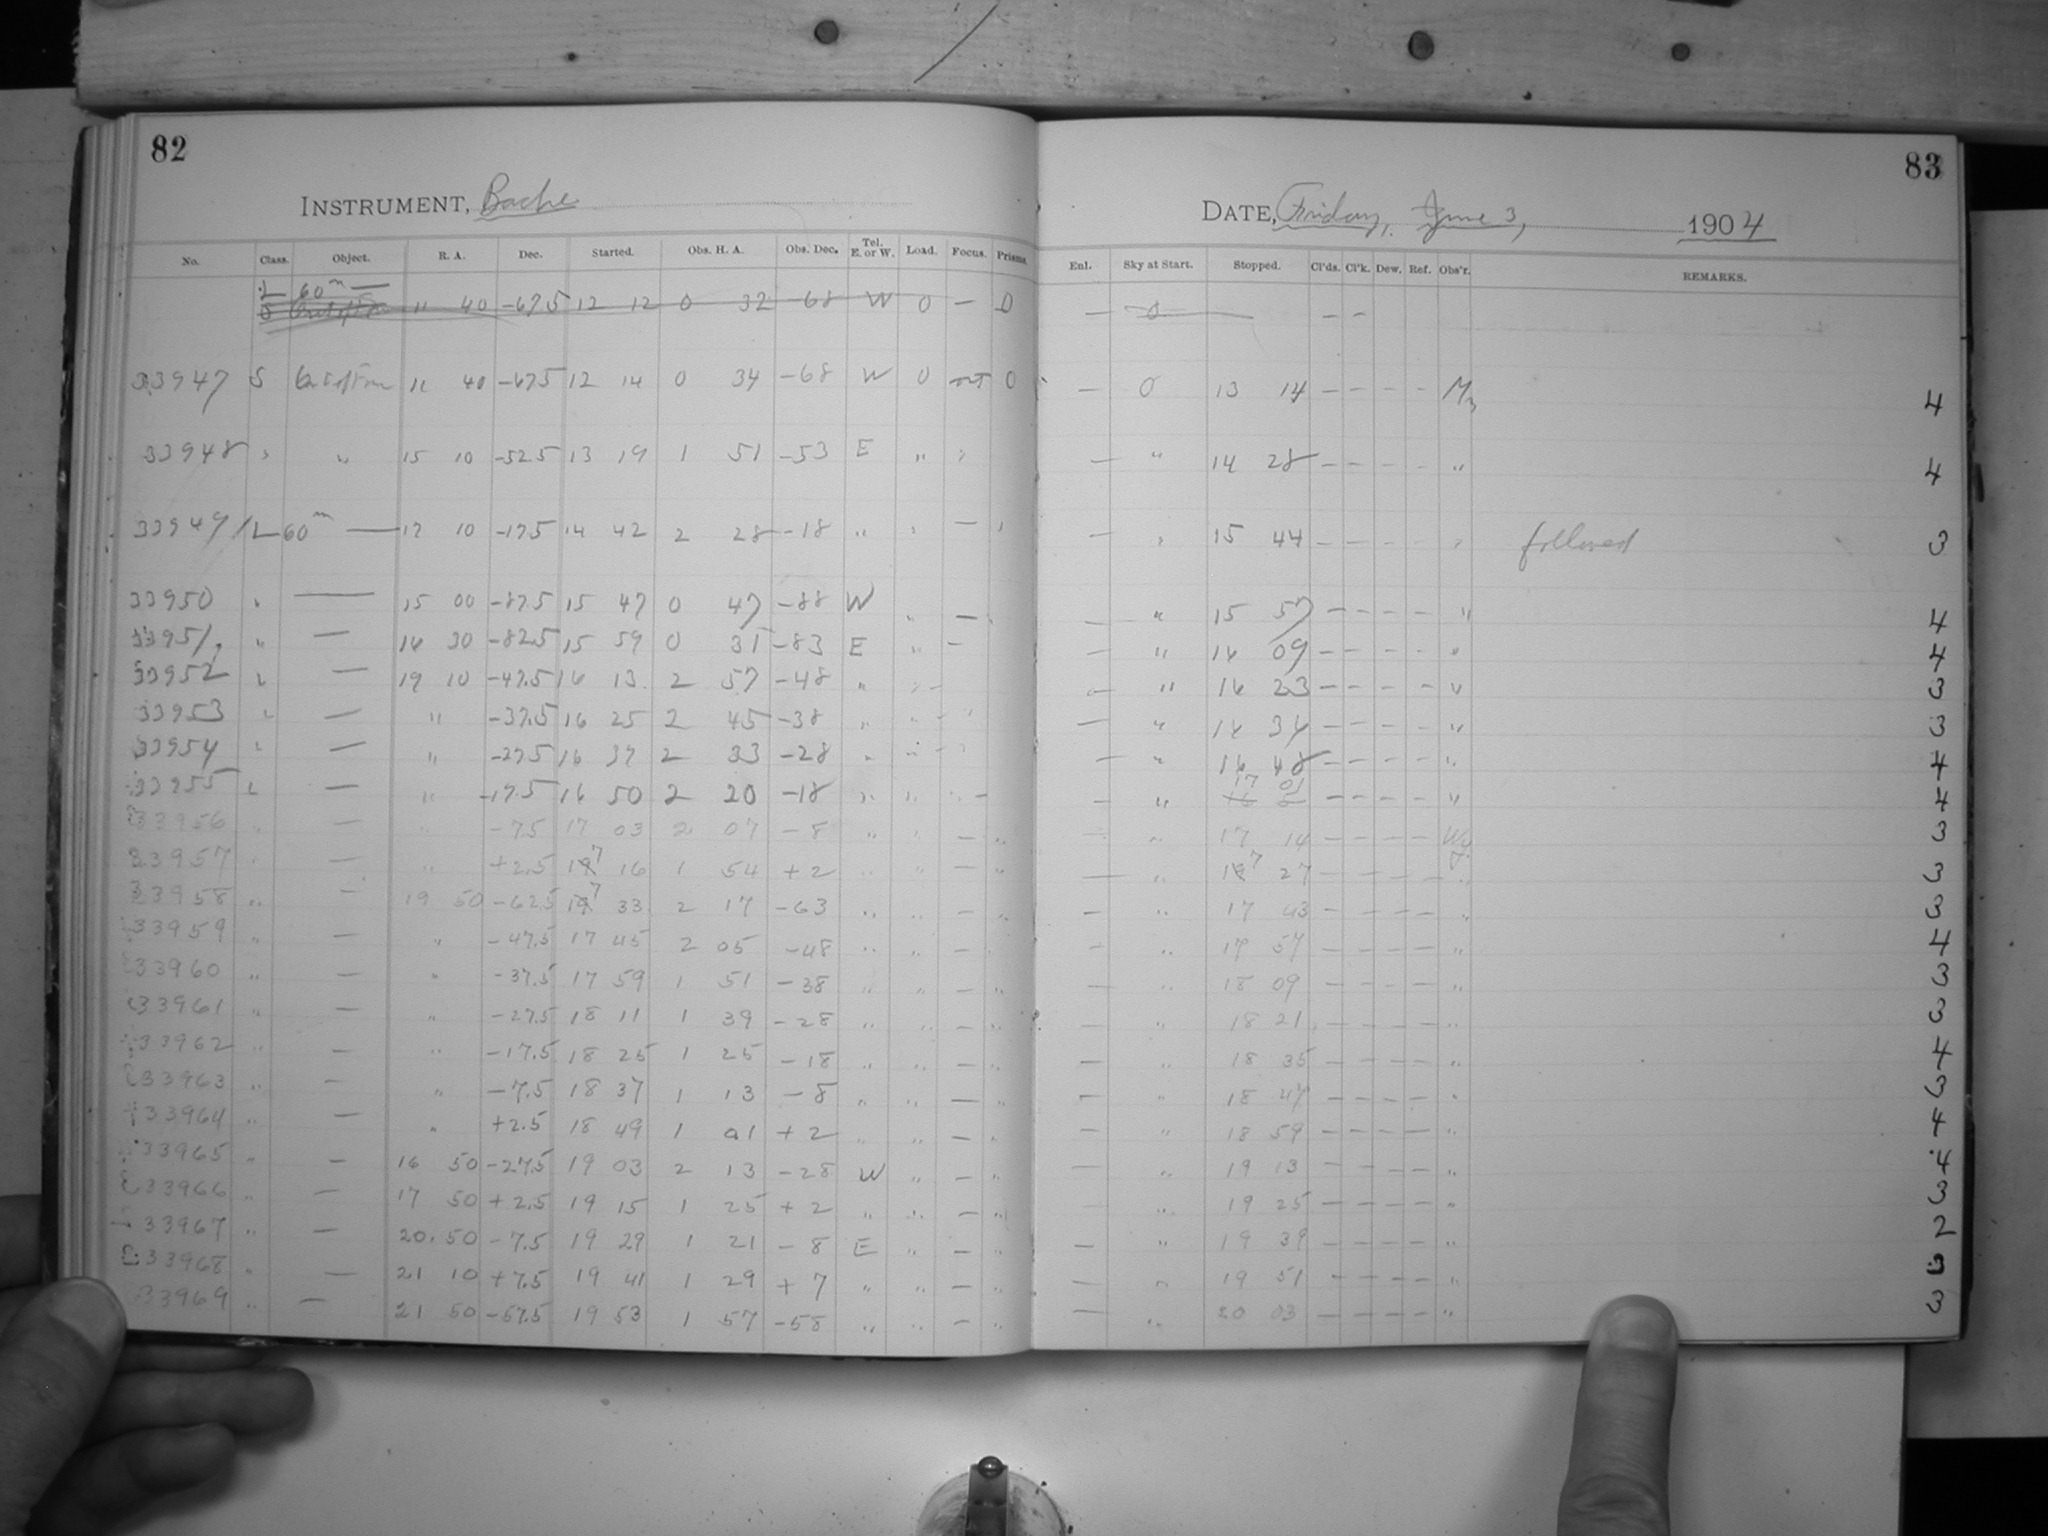 82
INSTRUMENT, Bache
No. Class. Object. R. A. Dec. Started. Obs. H. A. Obs. Dec. Tel. E. or W. Load. Focus. Prisms.
L 60m —
S 11 40 -67.5 12 12 0 32 -68 W 0 — 0
33947 S 11 40 -67.5 12 14 0 34 -68 W 0 out 0
33948 " " 15 10 -52.5 13 19 1 51 -53 E " "
33949 L 60m — 17 10 -17.5 14 42 2 28 -18 " " — "
33950 " — 15 00 -87.5 15 47 0 47 -88 W " —
33951 " — 16 30 -82.5 15 59 0 31 -83 E " —
33952 " — 19 10 -47.5 16 13 2 57 -48 " " —
33953 " — " -37.5 16 25 2 45 -38 " " — "
33954 " — " -27.5 16 37 2 33 -28 " " — "
33955 " — " -17.5 16 50 2 20 -18 " " " —
33956 " — " -7.5 17 03 2 07 -8 " " — "
33957 " — " +2.5 17 16 1 54 +2 " " — "
33958 " — 19 50 -62.5 17 33 2 17 -63 " " — "
33959 " — " -47.5 17 45 2 05 -48 " " — "
33960 " — " -37.5 17 59 1 51 -38 " " — "
33961 " — " -27.5 18 11 1 39 -28 " " — "
33962 " — " -17.5 18 25 1 25 -18 " " — "
33963 " — " -7.5 18 37 1 13 -8 " " — "
33964 — " +2.5 18 49 1 01 +2 " " — "
33965 " — 16 50 -27.5 19 03 2 13 -28 W " — "
33966 " — 17 50 +2.5 19 15 1 25 +2 " " — "
33967 " — 20 50 -7.5 19 29 1 21 -8 E " — "
33968 " — 21 10 +7.5 19 41 1 29 +7 " " — "
33969 " — 21 50 -57.5 19 53 1 57 -58 " " — "
83
DATE, Friday, June 3, 1904
Enl. Sky at Start. Stopped. Cl'ds. Cl'k. Dew. Ref. Obs'r. REMARKS.
— 0 — — —
— 0 13 14 — — — — 4
— " 14 28 — — — — " 4
— " 15 44 — — — — " followed 3
— " 15 57 — — — — " 4
— " 16 09 — — — — " 4
— " 16 23 — — — — " 3
— " 16 34 — — — — " 3
— " 16 48 — — — — " 4
— " 17 01 — — — — " 4
— " 17 14 — — — — Wy. 3
— " 17 27 — — — — " 3
— " 17 43 — — — — " 3
— " 17 57 — — — — " 4
— " 18 09 — — — — " 3
— " 18 21 — — — — " 3
— " 18 35 — — — — " 4
— " 18 47 — — — — " 3
— " 18 59 — — — — " 4
— " 19 13 — — — — " 4
— " 19 25 — — — — " 3
— " 19 39 — — — — " 2
— " 19 51 — — — — " 3
— " 20 03 — — — — " 3